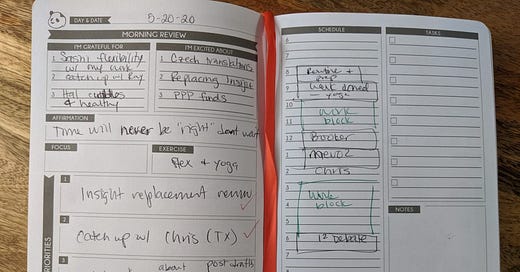 DAY & DATE 5-20-20
MORNING REVIEW
I'M GRATEFUL FOR
1 Sashi flexibility
w/ my work
2 catch up w/ Ray
3 Hal cuddles
& healthy
I'M EXCITED ABOUT
1 Czech translations
2 Replacing Insight
3 PPP funds
AFFIRMATION
Time will never be "right" don't wait
FOCUS
EXERCISE
flex + yoga
PRIORITIES
1
Insight replacement
2
Catch up w/ Chris (TX)
3
about post drafts
SCHEDULE
6
7
8 Routine +
prep
9 work
— yoga
10
11 work
block
12 Booker
1
2 Chris
3
4 work
block
5
6 1st Debate
TASKS
NOTES